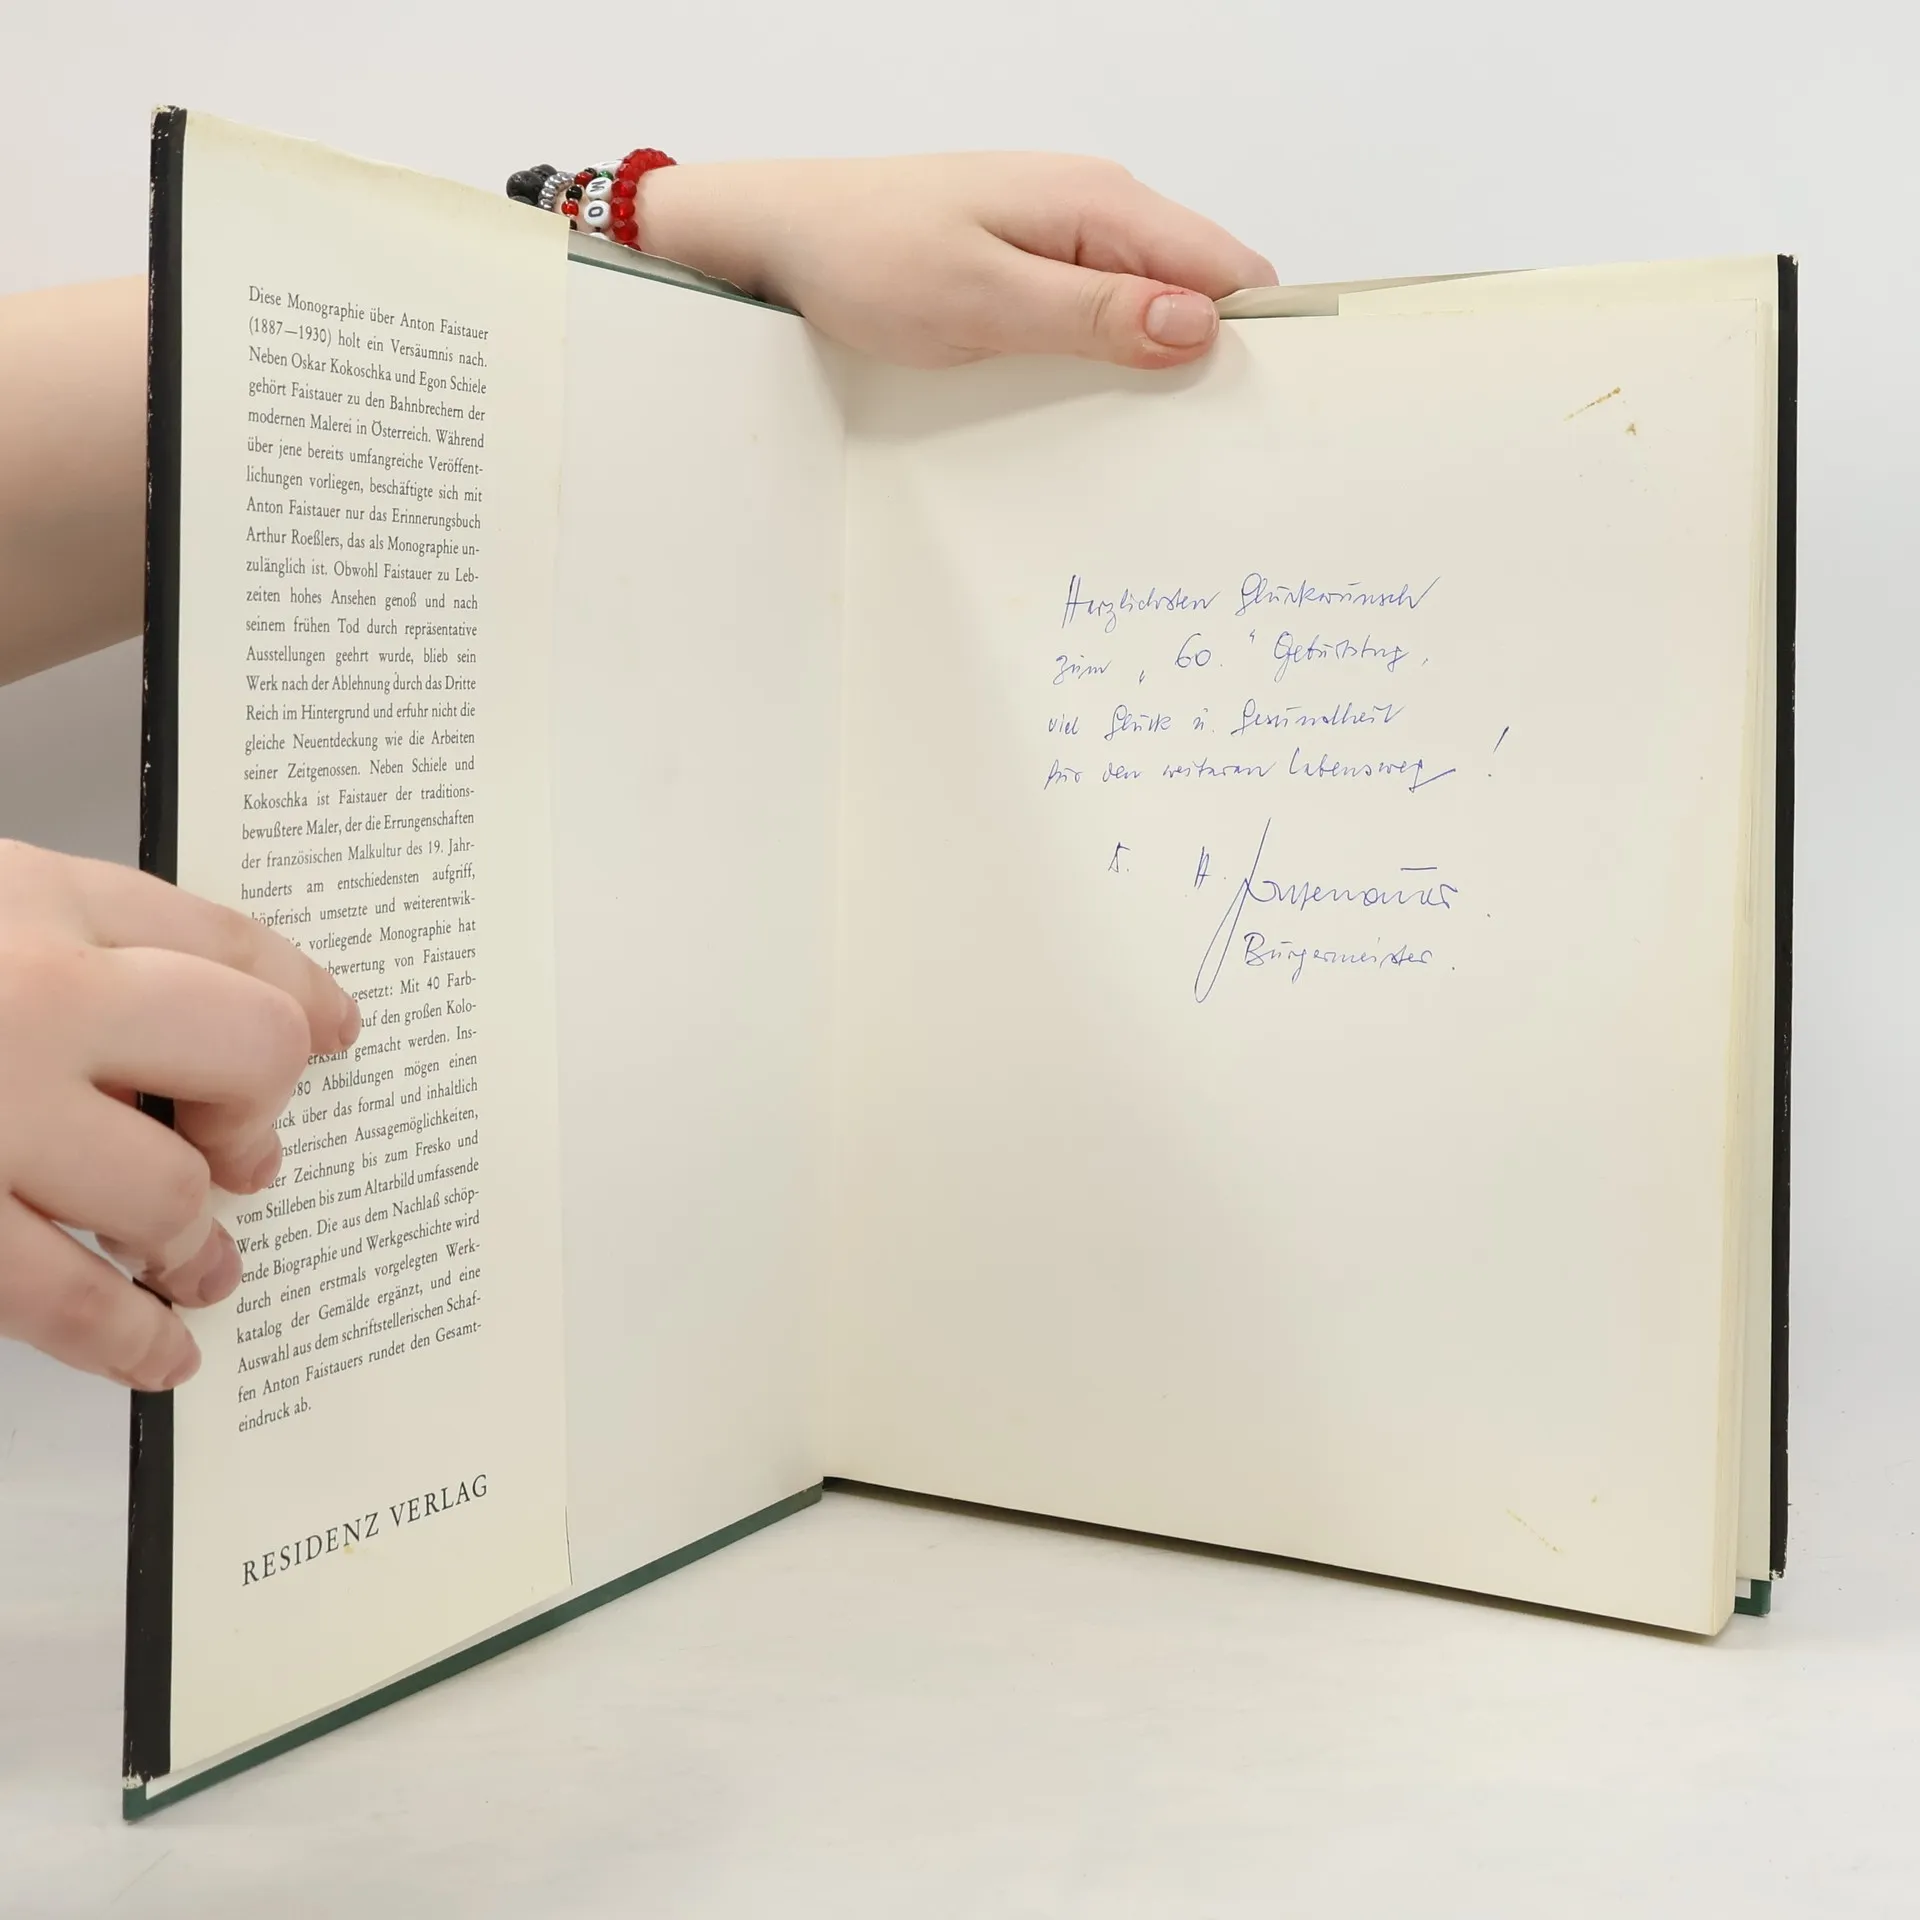 Diese Monographie über Anton Faistauer
(1887—1930) holt ein Versäumnis nach.
Neben Oskar Kokoschka und Egon Schiele
gehört Faistauer zu den Bahnbrechern der
modernen Malerei in Österreich. Während
über jene bereits umfangreiche Veröffent-
lichungen vorliegen, beschäftigte sich mit
Anton Faistauer nur das Erinnerungsbuch
Arthur Roeßlers, das als Monographie un-
zulänglich ist. Obwohl Faistauer zu Leb-
zeiten hohes Ansehen genoß und nach
seinem frühen Tod durch repräsentative
Ausstellungen geehrt wurde, blieb sein
Werk nach der Ablehnung durch das Dritte
Reich im Hintergrund und erfuhr nicht die
gleiche Neuentdeckung wie die Arbeiten
seiner Zeitgenossen. Neben Schiele und
Kokoschka ist Faistauer der traditions-
bewußtere Maler, der die Errungenschaften
der französischen Malkultur des 19. Jahr-
hunderts am entschiedensten aufgriff,
höpferisch umsetzte und weiterentwik-
vorliegende Monographie hat
bewertung von Faistauers
gesetzt: Mit 40 Farb-
auf den großen Kolo-
erksam gemacht werden. Ins-
80 Abbildungen mögen einen
lick über das formal und inhaltlich
nstlerischen Aussagemöglichkeiten,
der Zeichnung bis zum Fresko und
vom Stilleben bis zum Altarbild umfassende
Werk geben. Die aus dem Nachlaß schöp-
ende Biographie und Werkgeschichte wird
durch einen erstmals vorgelegten Werk-
katalog der Gemälde ergänzt, und eine
Auswahl aus dem schriftstellerischen Schaf-
fen Anton Faistauers rundet den Gesamt-
eindruck ab.
RESIDENZ VERLAG
Herzlichsten Glückwunsch
zum „60." Geburtstag,
viel Glück u. Gesundheit
für den weiteren Lebensweg!
Bürgermeister.
M
O